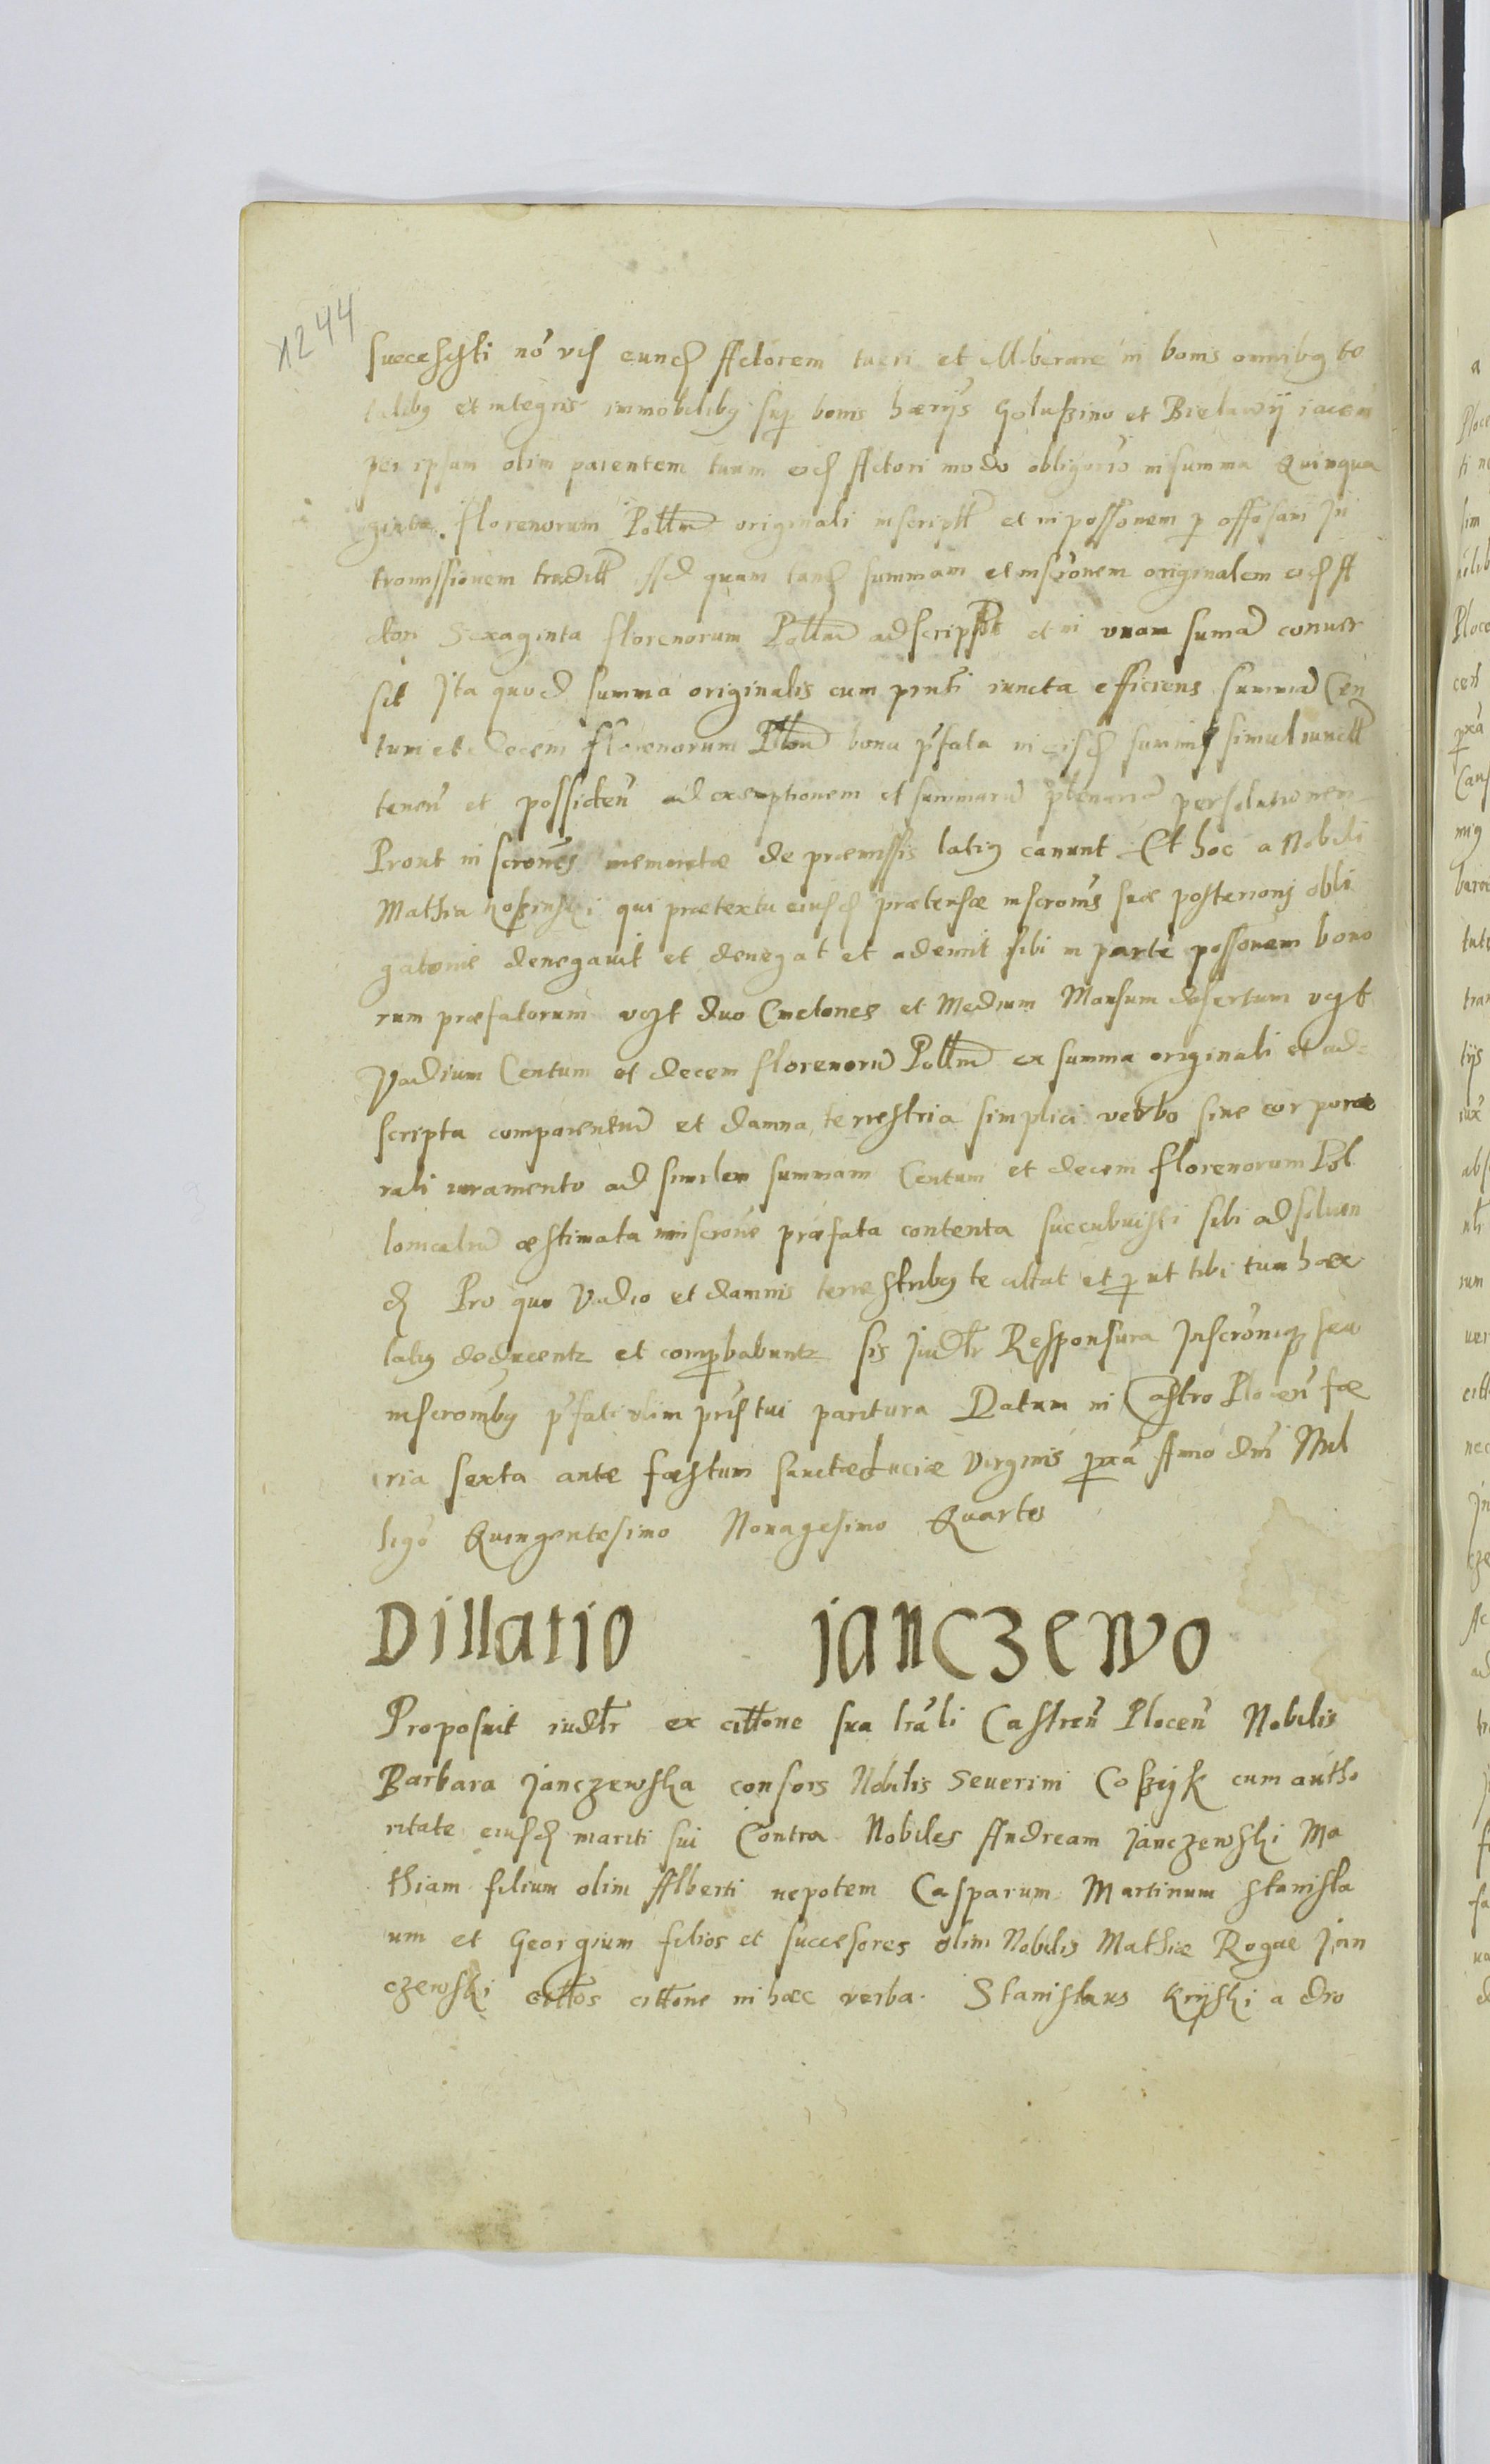 1244
successisti nō vis eund Actorem tueri et illiberare in bonis omnibq to
talibq et integris immobilibq sup bonis hæriis Golußino et Bielawÿ iacen
per ipsum olim parentem tuum eid Actori modo obligorio in summa Quinqua
ginta florenorum Pollm originali inscriptt et in possonem p offosam In
tromissionem traditt Ad quam tand summam et inscronem originalem eid A
ctori Sexaginta florenorum Pollm adscripsit et in vnam sumā conuer
sit Ita quod summa originalis cum pnti iuncta efficiens summā Cen
tum et decem florenorum Pllm bona pfata in eisd summis simul iunctt
tenen et possiden ad exemptionem et summarū plenariā persolutionem
Prout in scrones memoratæ de præmissis latiq canunt Et hoc a Nobili
Mathia qui prætextu eiusd prætensæ inscronis suæ posterioris obli
gatonis denegauit et denegat et ademit sibi in parte possonem bono
rum præfatorum vqzt duo Cmetones et Medium Mansum desertum vqzt
Vadium Centum et decem florenorū Pollm ex summa originali et ad
scripta comparentū et damna terrestria simplici verbo sine corporæ
rali iuramento ad similem summam Centum et decem florenorum Pol
lonicaliū æstimata in inscrone præfata contenta succubuisti sibi ad soluen
d Pro quo Vadio et damnis terrestribq te citat et put tibi tum hæc
latiq deducentz et compbabuntz sis Judtr Responsura Inscroniq seu
inscronibq pfati olim pris tui paritura Datum in Castro Plocen fæ
ria sexta ante fæstum sanctæ Luciæ Virginis pxā Anno dni Mil
lesō Quingentesimo Nonagesimo Quarto
Dillatio Janczewo
Proposuit iudtr ex cittone sua lrāli Castren Plocen Nobilis
Barbara Janczewska consors Nobilis Seuerini Coßzyk cum autho
ritate eiusd mariti sui Contra Nobiles Andream Janczewski Ma
thiam filium olim Alberti nepotem Casparum Martinum Stanisla
um et Georgium filios et successores olim Nobilis Mathiæ Rogae Jan
czewski cittos cittone in hæc verba. Stanislaus Kryski a dro